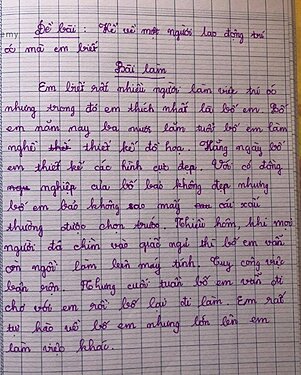 Đề bài : Kể về một người lao động trí
óc mà em biết
Bài làm
Em biết rất nhiều người làm việc trí óc
nhưng trong đó em thích nhất là bố em. Bố
em năm nay ba mươi lăm tuổi bố em làm
nghề thiết kế đồ họa. Hằng ngày bố
em thiết kế các hình cut đẹp. Vời có đồng
nghiệp của bố bảo không đẹp nhưng
bố em bảo không sao mấy cái xấu
thường được chọn trước. Nhiều hôm, khi mọi
người đã chìm vào giấc ngủ thì bố em vẫn
còn ngồi làm trên máy tính Tuy công việc
bận rộn. Nhưng cuối tuần bố em vẫn đi
chơ với em rồi bố lại đi làm. Em rất
tự hào về bố em nhưng lớn lên em
làm việc khác.